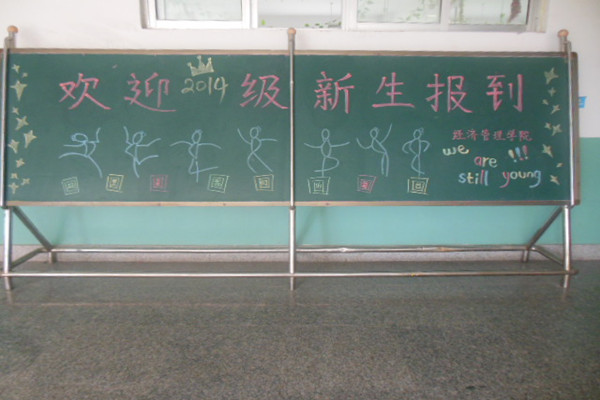 欢迎2014级新生报到
经济管理学院
we are !!!
still young